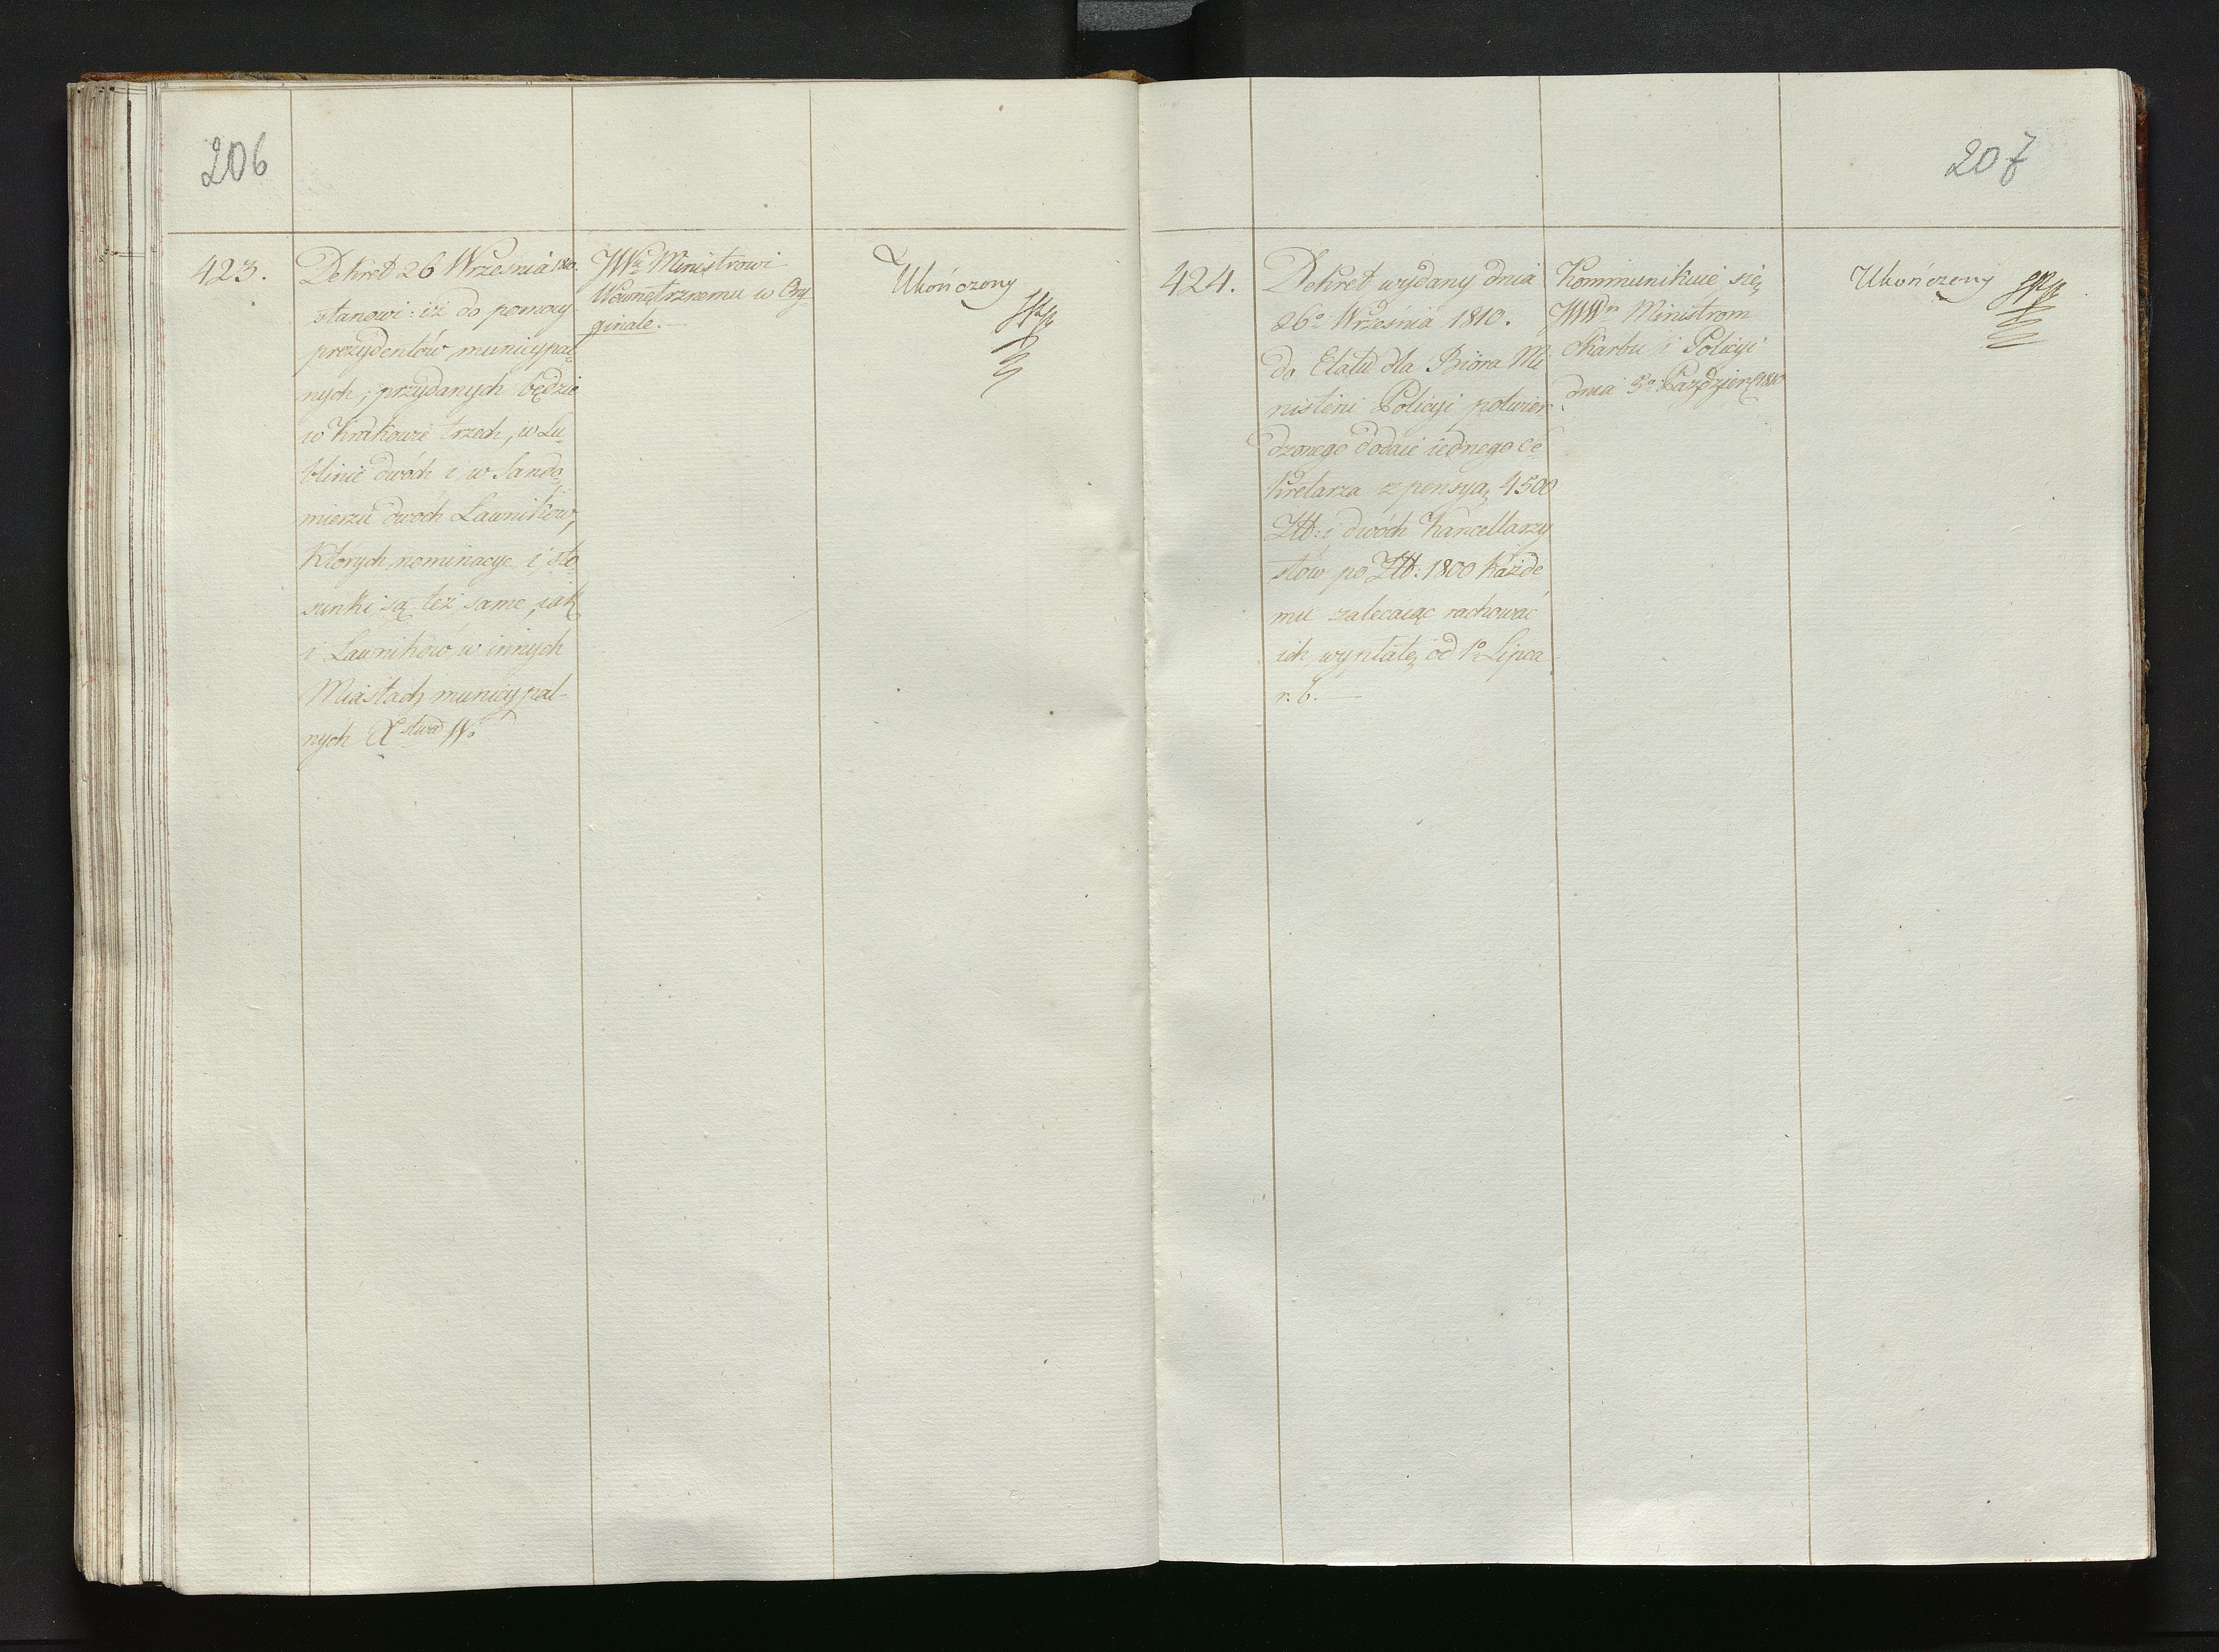 206
423.
Dekret 26 Września 1810.
stanowi: iż do pomocy
prezydentów municypal-
nych, przydanych będzie
w Krakowie trzech, w Lu-
blinie dwóch i w Sando-
mierzu dwóch Ławników,
których nominacye i sto-
sunki są też same, jak
i Ławników w innych
Miastach municypal-
nych X stwa W.
JWu Ministrowi
Wewnętrznemu w Ory-
ginale.
Ukończony
207
424.
Dekret wydany dnia
26o Września 1810.
do Etatu dla Bióra Mi-
nisterii Policyi potwier-
dzonego dodaie iednego Se-
kretarza z pensyą 4500
Złt: i dwóch Kancellarzy-
stów po Złt: 1800 każde-
mu zalecaiąc rachować
ich wypłatę od 1o Lipca
r. b.
Kommunikuie się
JWWm Ministrom
Skarbu i Policyi
dnia 5o Paździer: 1810
Ukończony